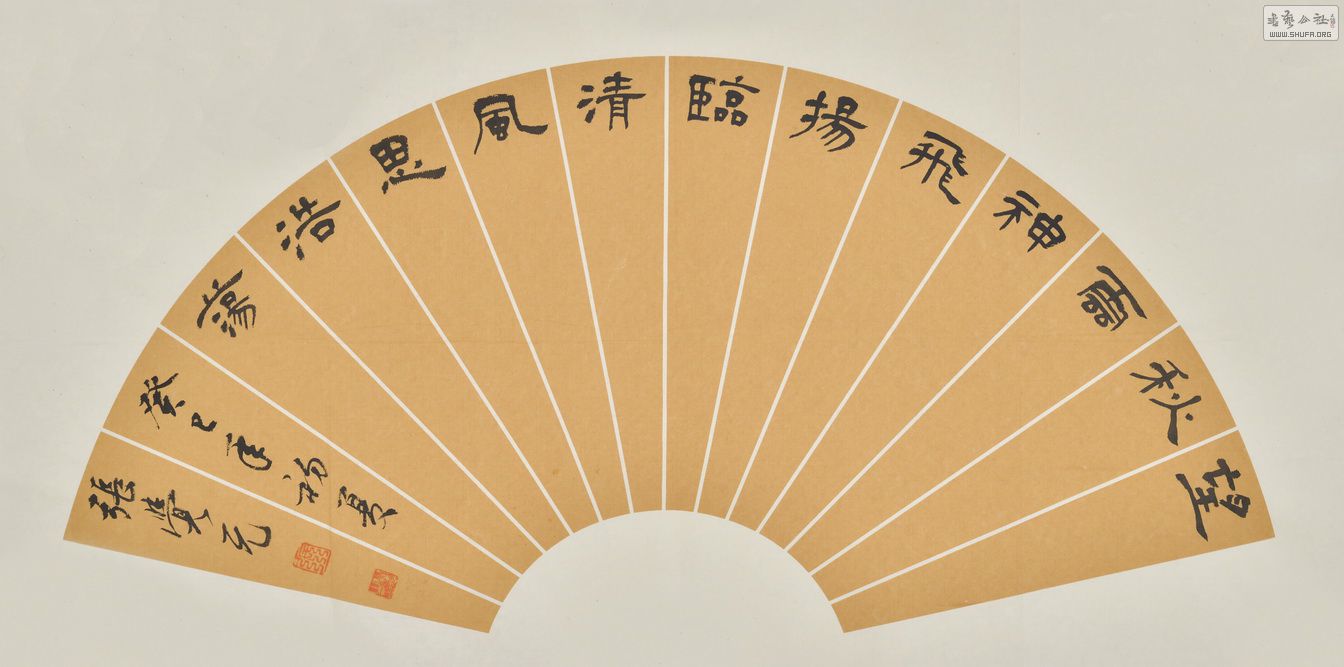 望
秋
雲
神
飛
揚
臨
清
風
思
浩
蕩
癸巳年初夏
張
書藝公社
WWW.SHUFA.ORG